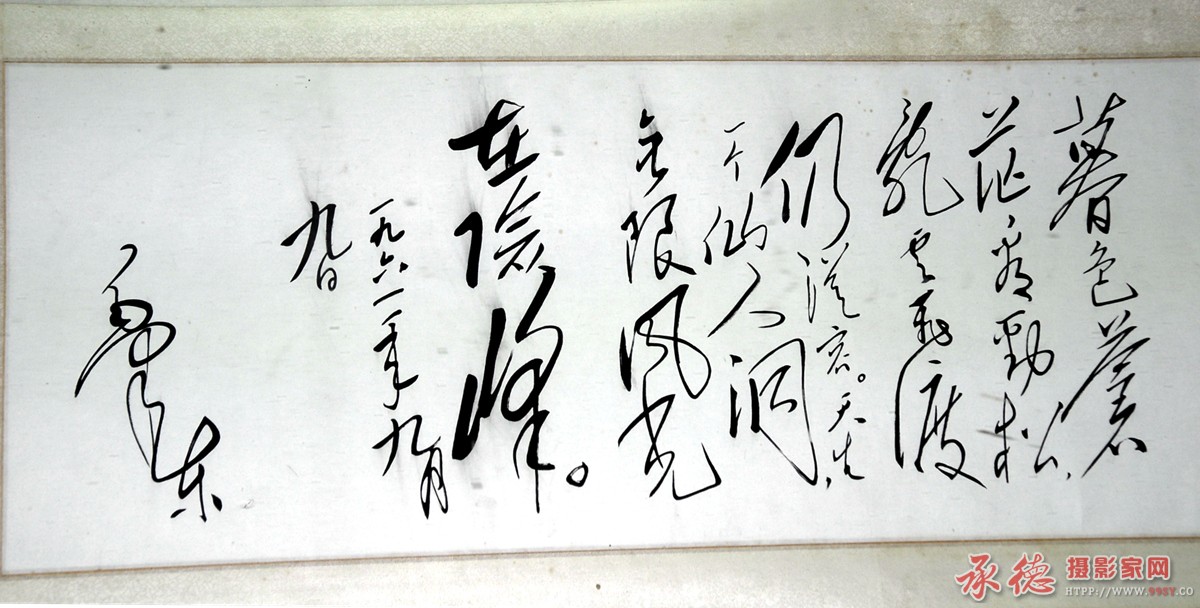 暮色蒼
茫看勁松,
亂云飛渡
仍從容。天生
一个仙人洞
无限風光
在險峰。
一九六一年九月
九日
毛澤東
承德 摄影家网
HTPP://WWW.99SY.CO